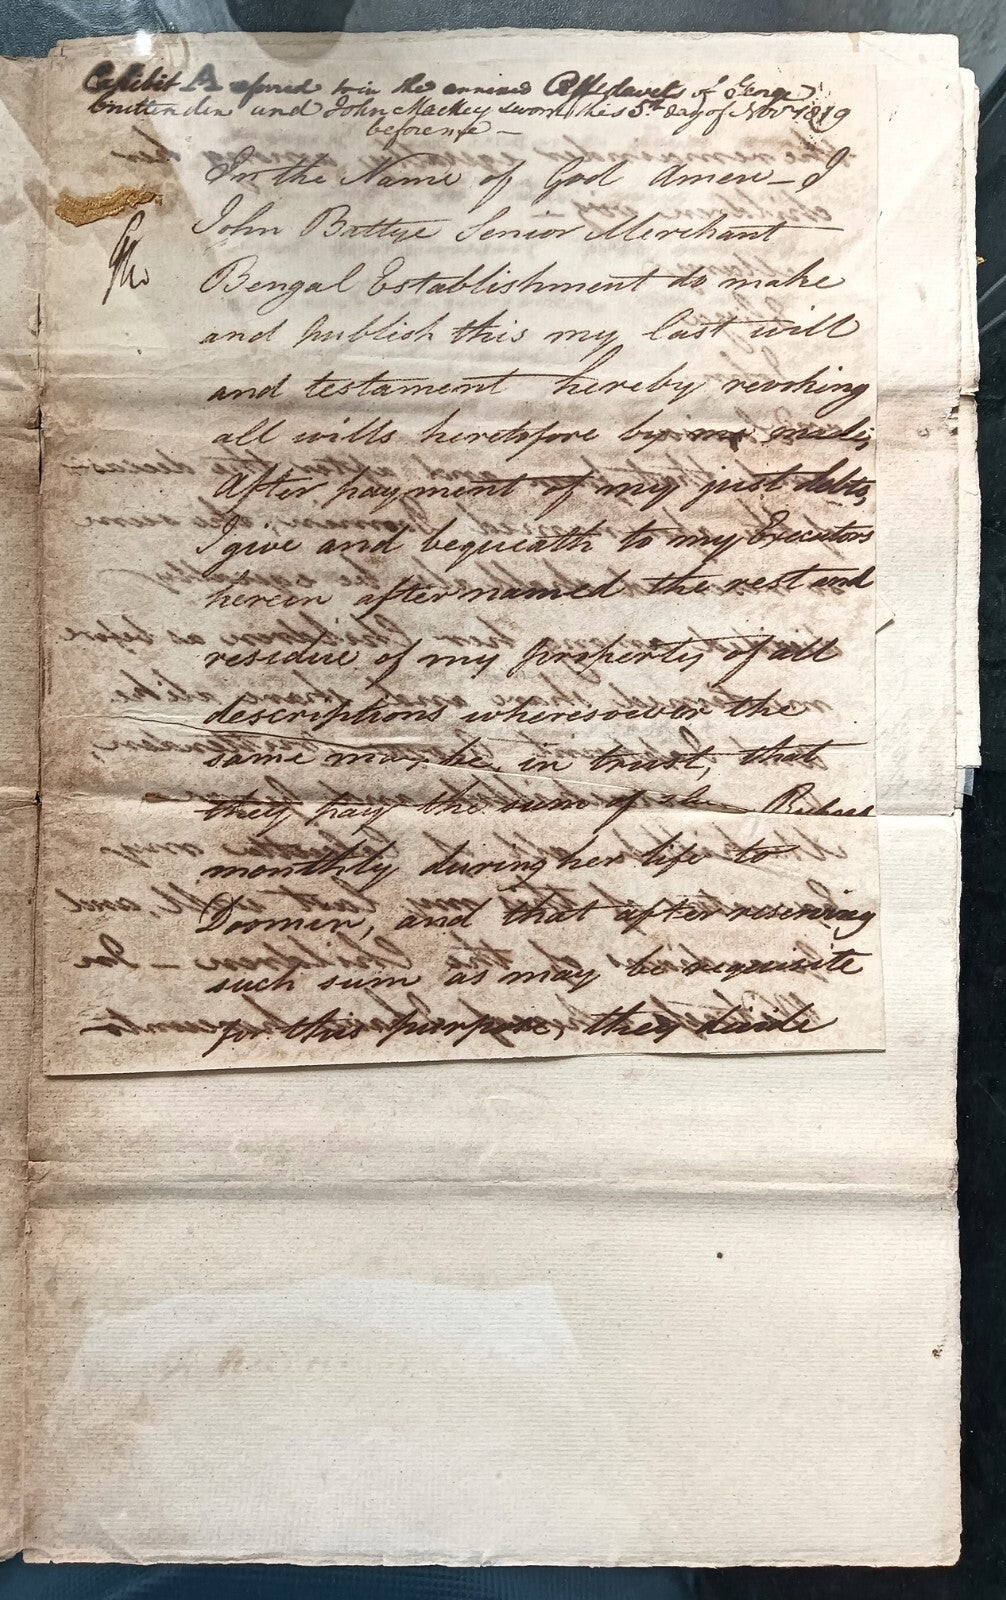 Exhibit A referred to in the annexed Affidavits of George
Cruttenden and John Mackey sworn this 5th day of Novr 1819
before me –
In the Name of God Amen – I
John Battye Senior Merchant
Bengal Establishment do make
and publish this my last will
and testament hereby revoking
all wills heretofore by me made;
After payment of my just debts,
I give and bequeath to my Executors
herein after named the rest and
residue of my property of all
descriptions wheresoever the
same may be, in trust, that
they pay the sum of Rupees
monthly during her life to
Doomen, and that after reserving
such sum as may be requisite
for this purpose, they divide